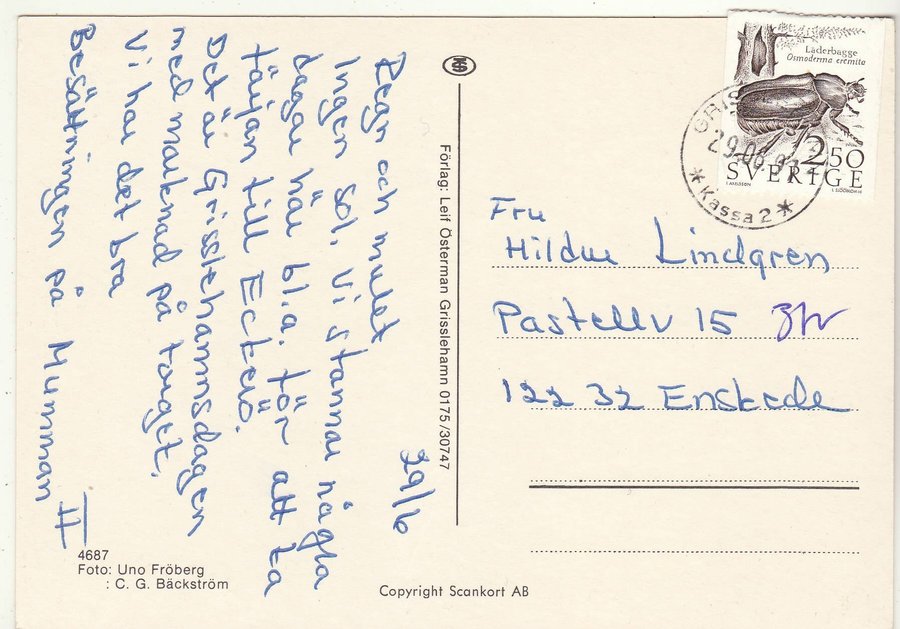 29/6
Regn och mulet
Ingen sol. Vi stannar några
dagar här bl.a. för att ta
färjan till Eckerö.
Det är Grisslehamnsdagen
med marknad på torget.
Vi har det bra
Besättningen på Mumman II
4687
Foto: Uno Fröberg
: C. G. Bäckström
Förlag: Leif Österman Grisslehamn 0175/30747
Copyright Scankort AB
Läderbagge
Osmoderma eremita
2.50
SVERIGE
GRIS
29.06.
* Kassa 2 *
Fru
Hildur Lindgren
Pastellv 15
122 32 Enskede